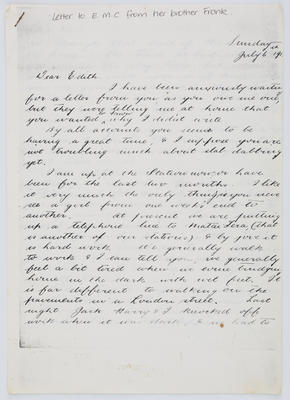 Letter to E M C from her brother Frank.
Sunday
July 6th 19
Dear Edith
I have been anxiously waiting
for a letter from you as you owe me one,
but they were telling me at home that
you wanted to know why I didn't write
By all accounts you seem to be
having a great time, & I suppose you are
not troubling much about old
yet.
I am up at the Station now or have
been for the last two months. I like
it very much the only thing is you never
see a girl from one week's end to
another. At present we are putting
up a telephone line to (that
is another of our stations) & by jove it
is hard work. We generally walk
to work & I can tell you, we generally
feel a bit tired when we come trudging
home in the dark with wet feet. It
is far different to walking on the
pavements in a London street. Last
night Jack Harry & I knocked off
work when it was dark, & we had to